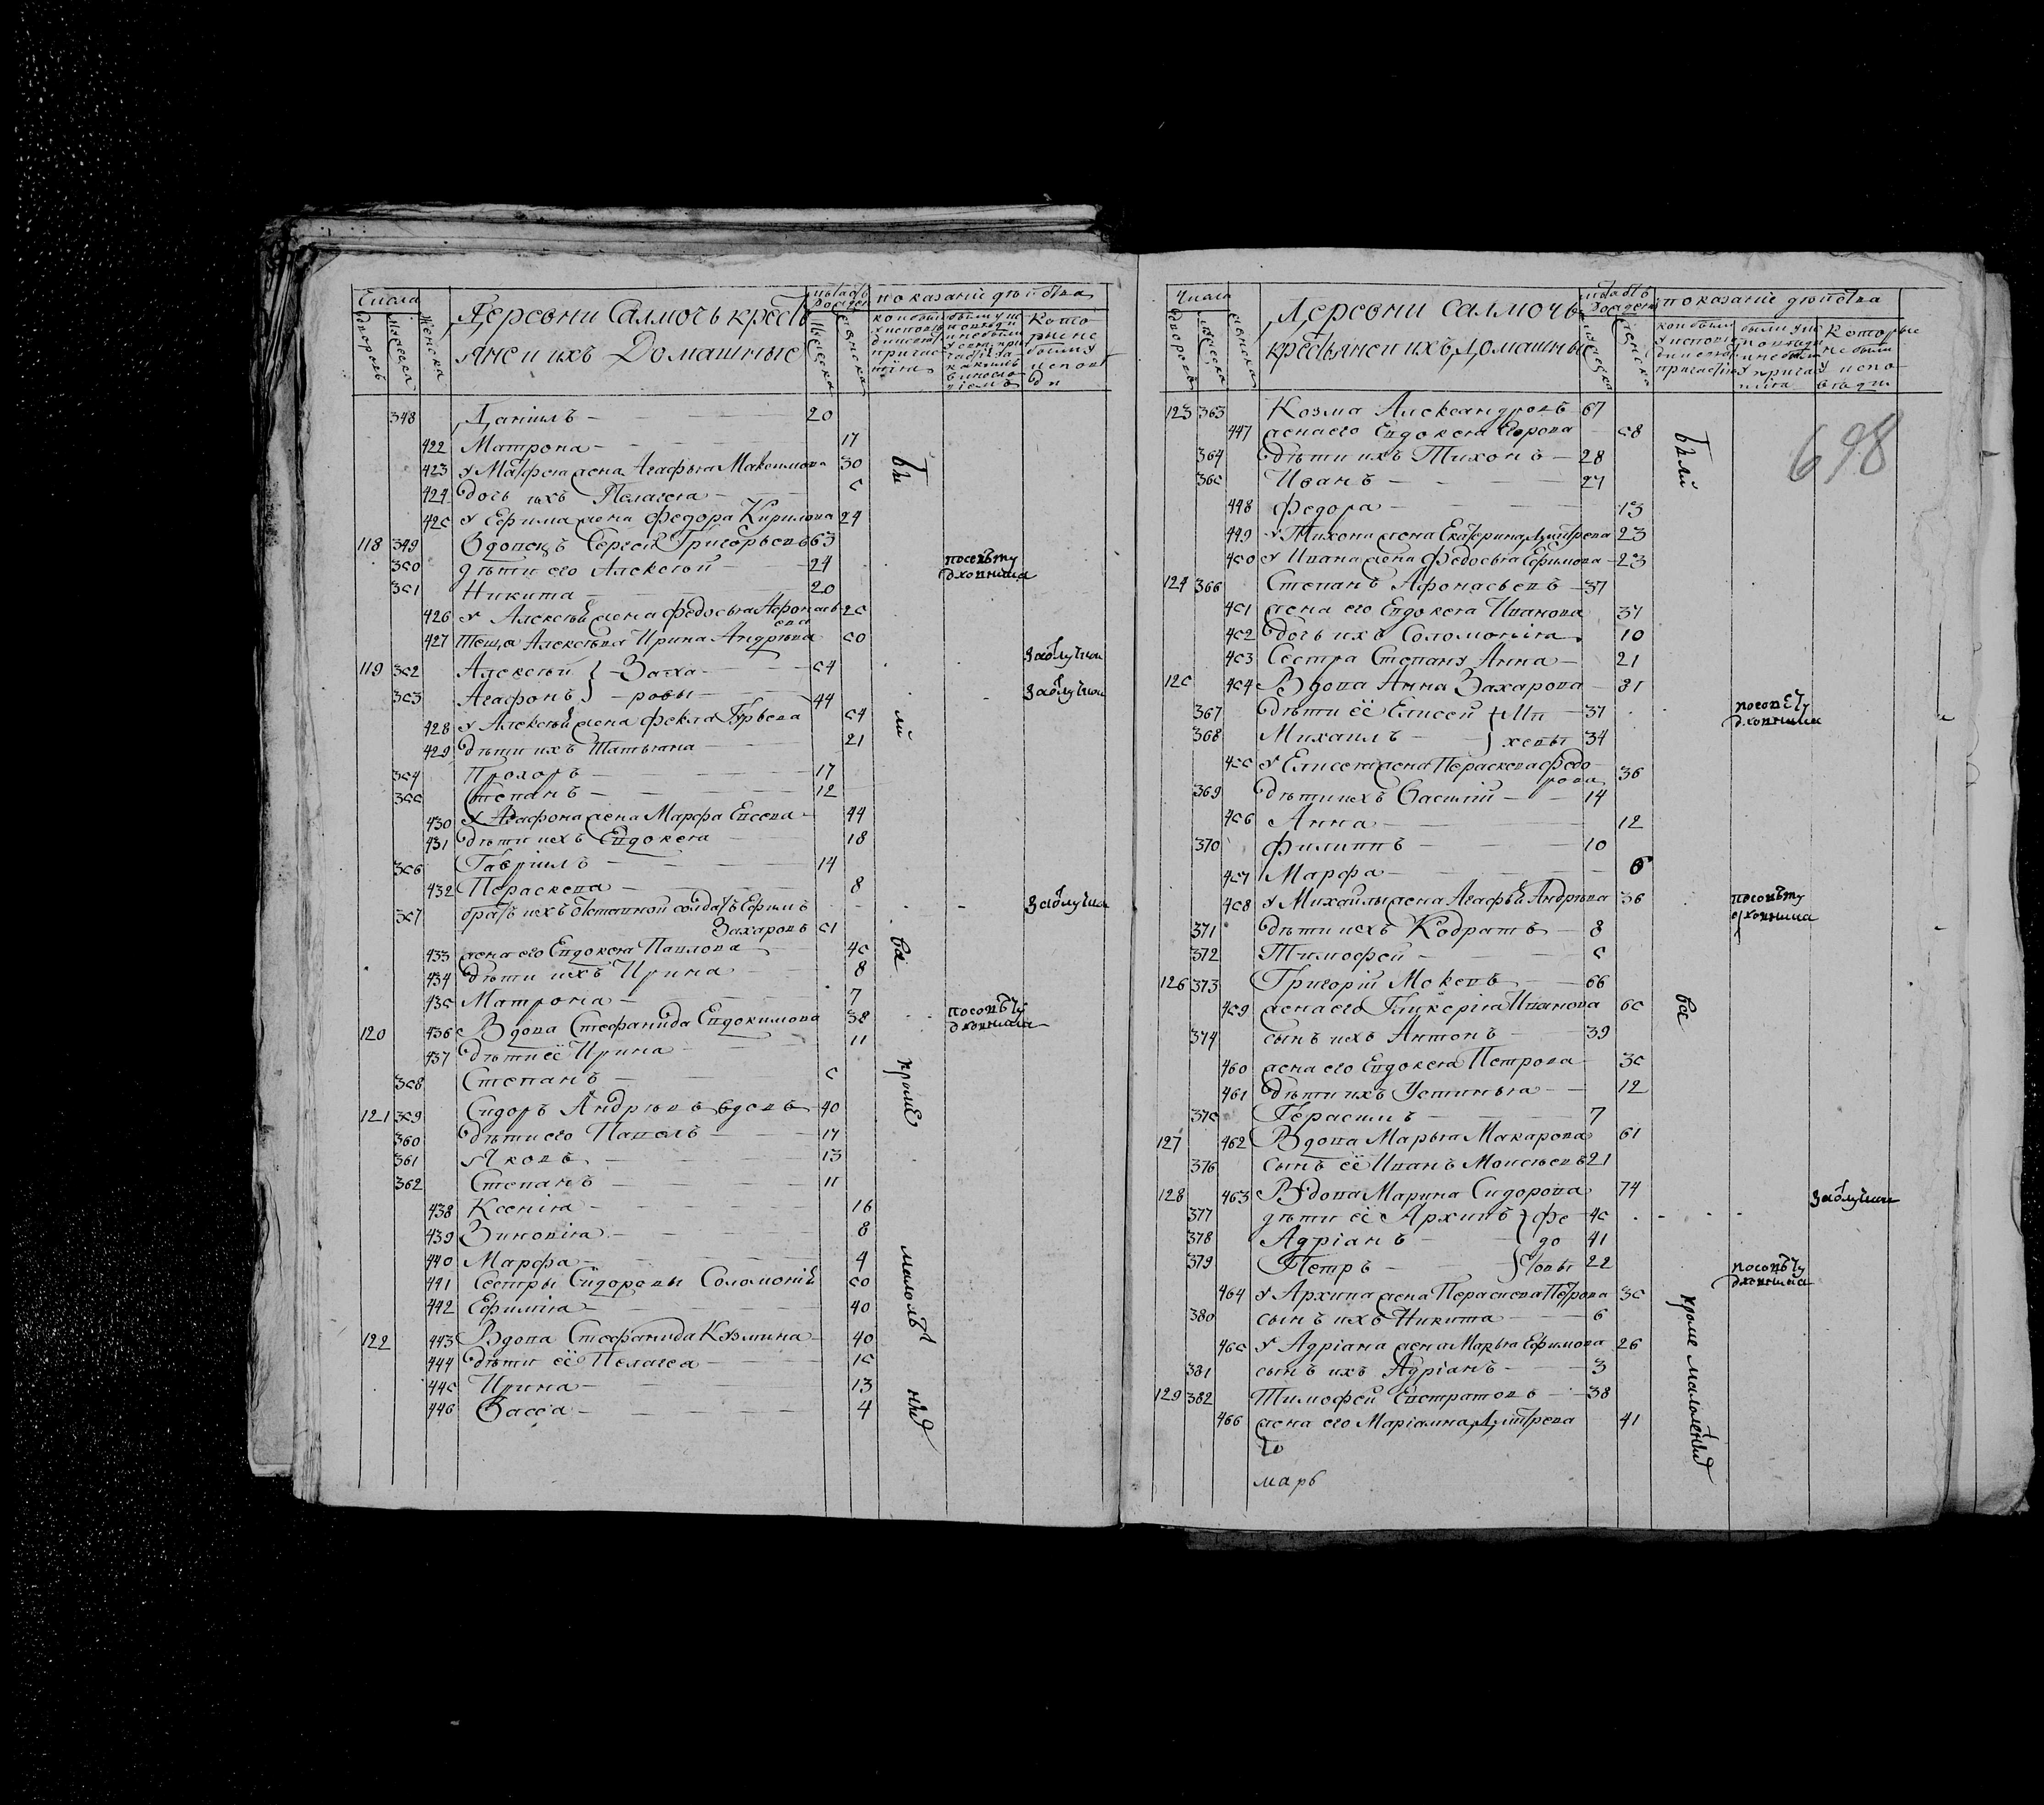 Числа
Деревни Салмочь кресть
яне и ихъ Домашныя
показаніе действа
дворовъ
мужеска
женска
348 Даніилъ — 20
422 Матрона — 17
423 у Матфея жена Агафья Максимова 30
424 дочь ихъ Пелагея — 5
425 у Ефима жена Федора Кирилова 24
118 349 Вдовецъ Сергей Григорьевъ 63
350 дѣти его Алексѣй — 24
по совѣту
духовника
351 Никита — 20
426 у Алексѣя жена Федосья Афонась
ева 25
427 теща Алексѣева Ирина Андрѣева 50
119 352 Алексѣй } Заха — 54
за отлучкой
353 Агафонъ } ровы — 44
за отлучкой
428 у Алексѣя жена Фекла Гурьева 54
429 дѣти ихъ Татьяна — 21
354 Прохоръ — 17
355 Степанъ — 12
430 у Агафона жена Марфа Евсева 44
431 дѣти ихъ Евдокея — 18
356 Гавріилъ — 14
432 Пераскева — 8
357 братъ ихъ отставной солдатъ Ефимъ
за отлучкой
Захаровъ 51
433 жена его Евдокея Павлова 45
434 дѣти ихъ Ирина — 8
435 Матрона — 7
120 436 Вдова Стефанида Евдокимова 38
по совѣту
духовника
437 дѣти её Ирина — 11
358 Степанъ — 5
121 359 Сидоръ Андрѣевъ вдовъ 40
360 дѣти его Павелъ — 17
361 Яковъ — 13
362 Степанъ — 11
438 Ксенія — 16
439 Зиновія — 8
440 Марфа — 4
441 Сестры Сидоровы Соломонія 50
442 Ефимія — 40
122 443 Вдова Стефанида Кузмина 40
444 дѣти её Пелагея — 15
445 Ирина — 13
446 Васса — 4
бы
ли
все
кромѣ
малолѣт
нихъ
Числа
Деревни Салмочь
крестьяне и ихъ домашныя
показаніе действа
дворовъ
мужеска
женска
698
123 363 Козма Александровъ 67
447 жена его Евдокея Егорова 58
364 дѣти ихъ Тихонъ — 28
365 Иванъ — 27
448 Федора — 13
449 у Тихона жена Екатерина Дмитрева 23
450 у Ивана жена Федосья Ефимова 23
124 366 Степанъ Афонасьевъ 37
451 жена его Евдокея Иванова 37
452 дочь ихъ Соломонія 10
453 Сестра Степану Анна 21
125 454 Вдова Анна Захарова 81
367 дѣти её Елисей } Ми 37
по совѣту
духовника
368 Михаилъ } хевы 34
455 у Елисея жена Пераскева Федо
рова 36
369 дѣти ихъ Василій — 14
456 Анна — 12
370 Филиппъ — 10
457 Марфа — 6
458 у Михайлы жена Агафья Андрѣева 36
по совѣту
духовника
371 дѣти ихъ Кодратъ 8
372 Тимофей — 5
126 373 Григорій Мокевъ — 66
459 жена его Гликерія Иванова 65
374 сынъ ихъ Антонъ — 39
460 жена его Евдокея Петрова 35
461 дѣти ихъ Устинья — 12
375 Герасимъ — 7
127 462 Вдова Марья Макарова 61
376 сынъ её Иванъ Моисеевъ 21
128 463 Вдова Марина Сидорова 74
за отлучкой
377 дѣти её Архипъ } Фе 45
378 Адріанъ — до 41
379 Петръ — } товы 22
по совѣту
духовника
464 у Архипа жена Пераскева Петрова 35
380 сынъ ихъ Никита — 6
465 у Адріана жена Марья Ефимова 26
381 сынъ ихъ Адріанъ — 3
129 382 Тимофей Евстратовъ — 38
466 жена его Маріамна Дмитрева 41
марѳ
были
все
кроме малолѣтнихъ